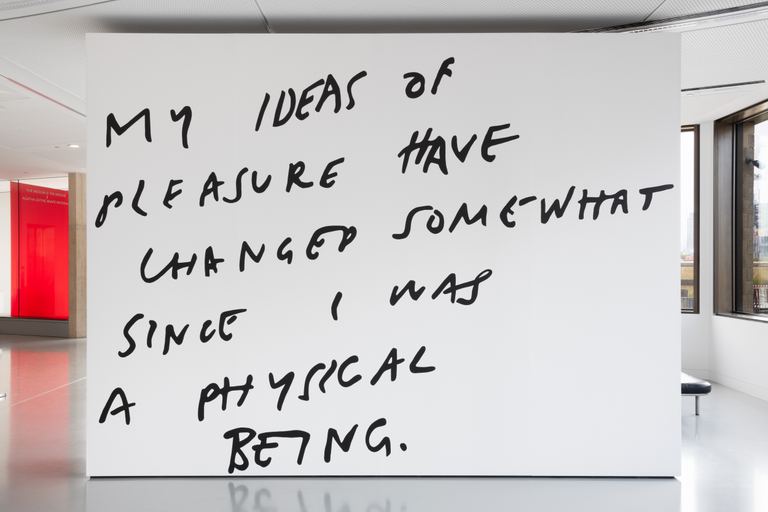 MY IDEAS OF
PLEASURE HAVE
CHANGED SOMEWHAT
SINCE I WAS
A PHYSICAL
BEING.